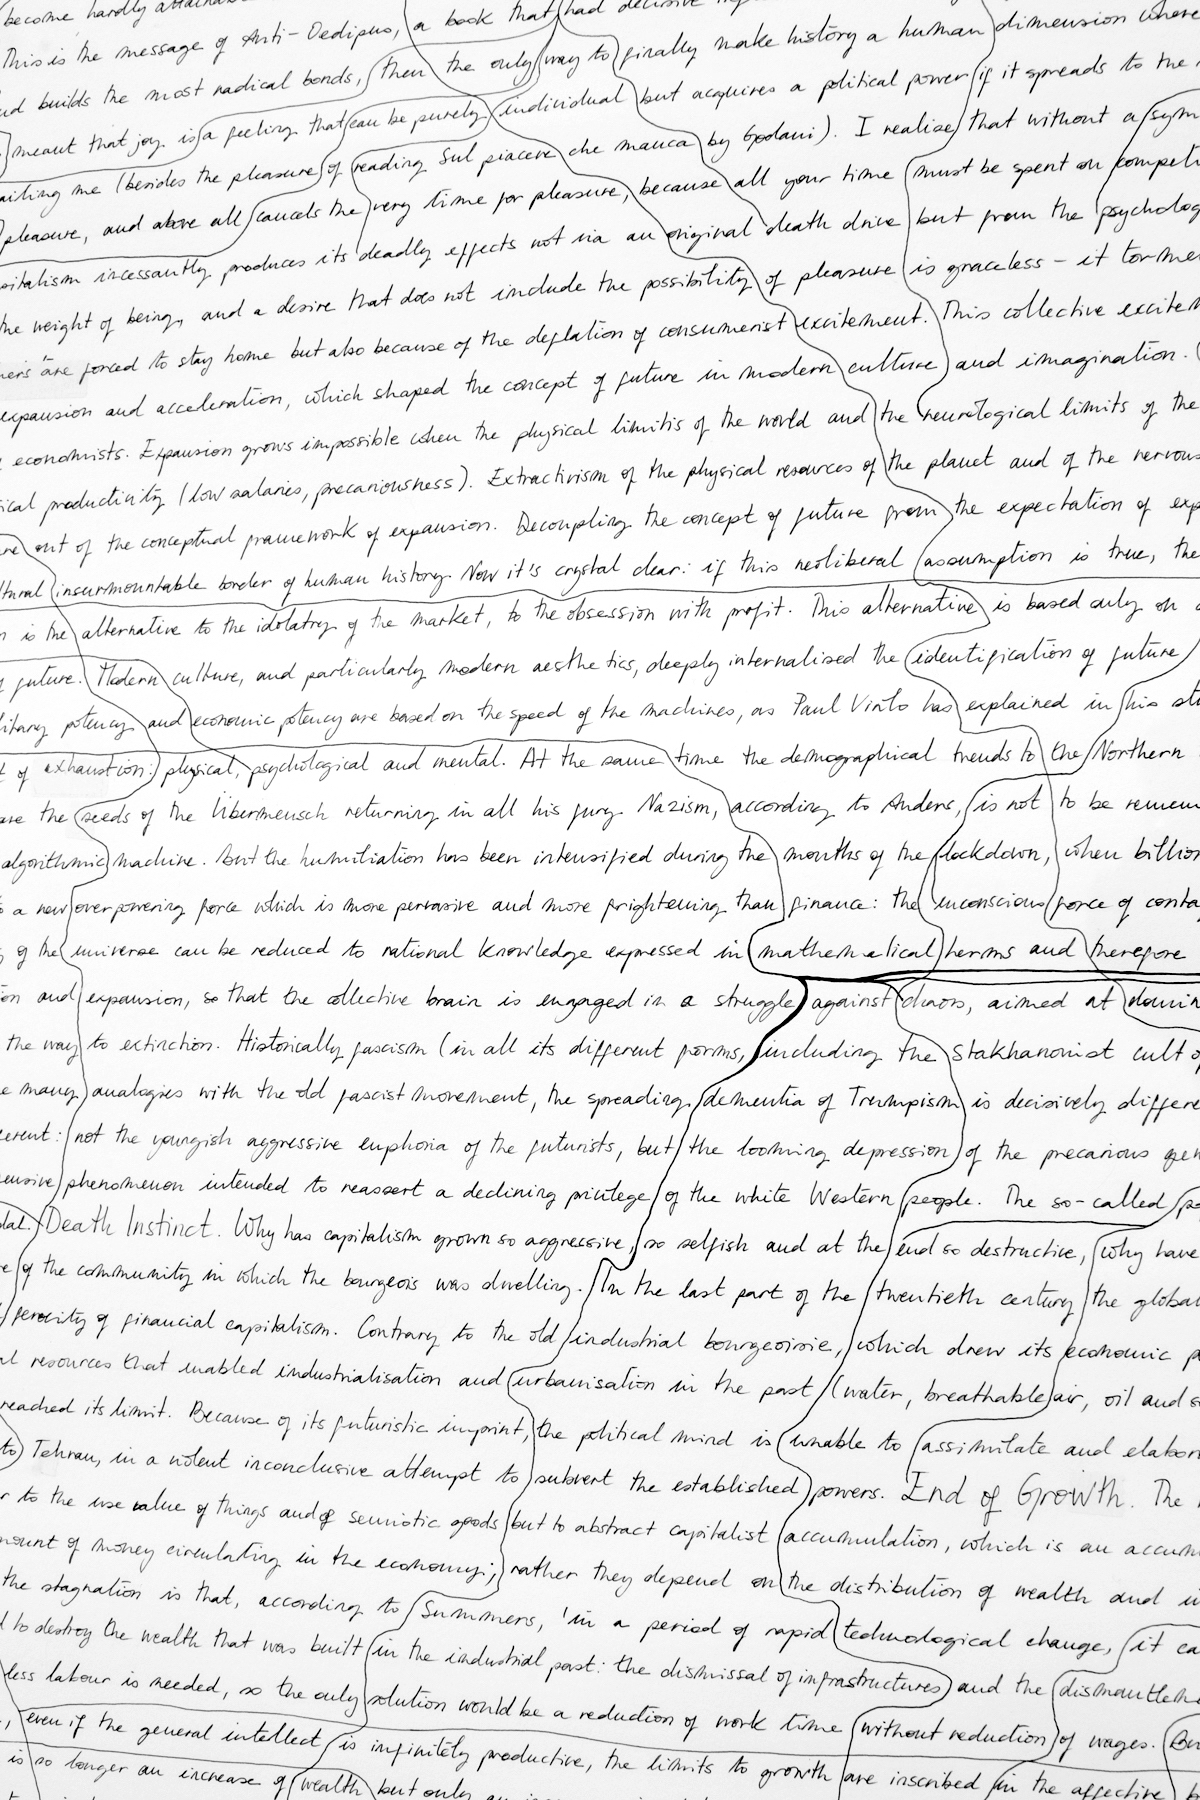 become hardly
This is the message of Anti-Oedipus, a book that had decisive
and builds the most radical bonds, then the only way to finally make history a human dimension where
meant that joy is a feeling that can be purely individual but acquires a political power if it spreads to the
me (besides the pleasure of reading Sul piacere che manca by Godani). I realise that without a
pleasure, and above all cancels the very time for pleasure, because all your time must be spent on
incessantly produces its deadly effects not via an original death drive but from the
the weight of being, and a desire that does not include the possibility of pleasure is graceless – it
are forced to stay home but also because of the deflation of consumerist excitement. This collective
expansion and acceleration, which shaped the concept of future in modern culture and imagination.
economists. Expansion grows impossible when the physical limitis of the world and the neurological limits of the
productivity (low salaries, precariousness). Extractivism of the physical resources of the planet and of the
out of the conceptual framework of expansion. Decoupling the concept of future from the expectation of
insurmountable border of human history. Now it's crystal clear: if this neoliberal assumption is true, the
is the alternative to the idolatry of the market, to the obsession with profit. This alternative is based only on
future. Modern culture, and particularly modern aesthetics, deeply internalised the identification of future
potency and economic potency are based on the speed of the machines, as Paul Virilo has explained in his
of exhaustion: physical, psychological and mental. At the same time the demographical trends to the Northern
the seeds of the Übermensch returning in all his fury. Nazism, according to Anders, is not to be
algorithmic machine. But the humiliation has been intensified during the months of the lockdown, when
a new overpowering force which is more pervasive and more frightening than finance: the inconscious force of
of the universe can be reduced to rational knowledge expressed in mathematical terms and therefore
and expansion, so that the collective brain is engaged in a struggle against chaos, aimed at
the way to extinction. Historically fascism (in all its different forms, including the Stakhanovist cult of
many analogies with the old fascist movement, the spreading dementia of Trumpism is decisively
not the youngish aggressive euphoria of the futurists, but the looming depression of the precarious
phenomenon intended to reassert a declining privilege of the white Western people. The so-called
Death Instinct. Why has capitalism grown so aggressive, so selfish and at the end so destructive, why have
of the community in which the bourgeois was dwelling. In the last part of the twentieth century the global
ferocity of financial capitalism. Contrary to the old industrial bourgeoisie, which drew its economic
resources that enabled industrialisation and urbanisation in the past (water, breathable air, oil and
reached its limit. Because of its futuristic imprint, the political mind is unable to assimilate and
to) Tehran, in a violent inconclusive attempt to subvert the established powers. End of Growth. The
to the use value of things and of semiotic goods but to abstract capitalist accumulation, which is an
of money circulating in the economy; rather they depend on the distribution of wealth and
the stagnation is that, according to Summers, 'in a period of rapid technological change, it
to destroy the wealth that was built in the industrial past: the dismissal of infrastructures and the
less labour is needed, so the only solution would be a reduction of work time without reduction of wages.
even if the general intellect is infinitely productive, the limits to growth are inscribed in the affective
is so longer an increase of wealth but only